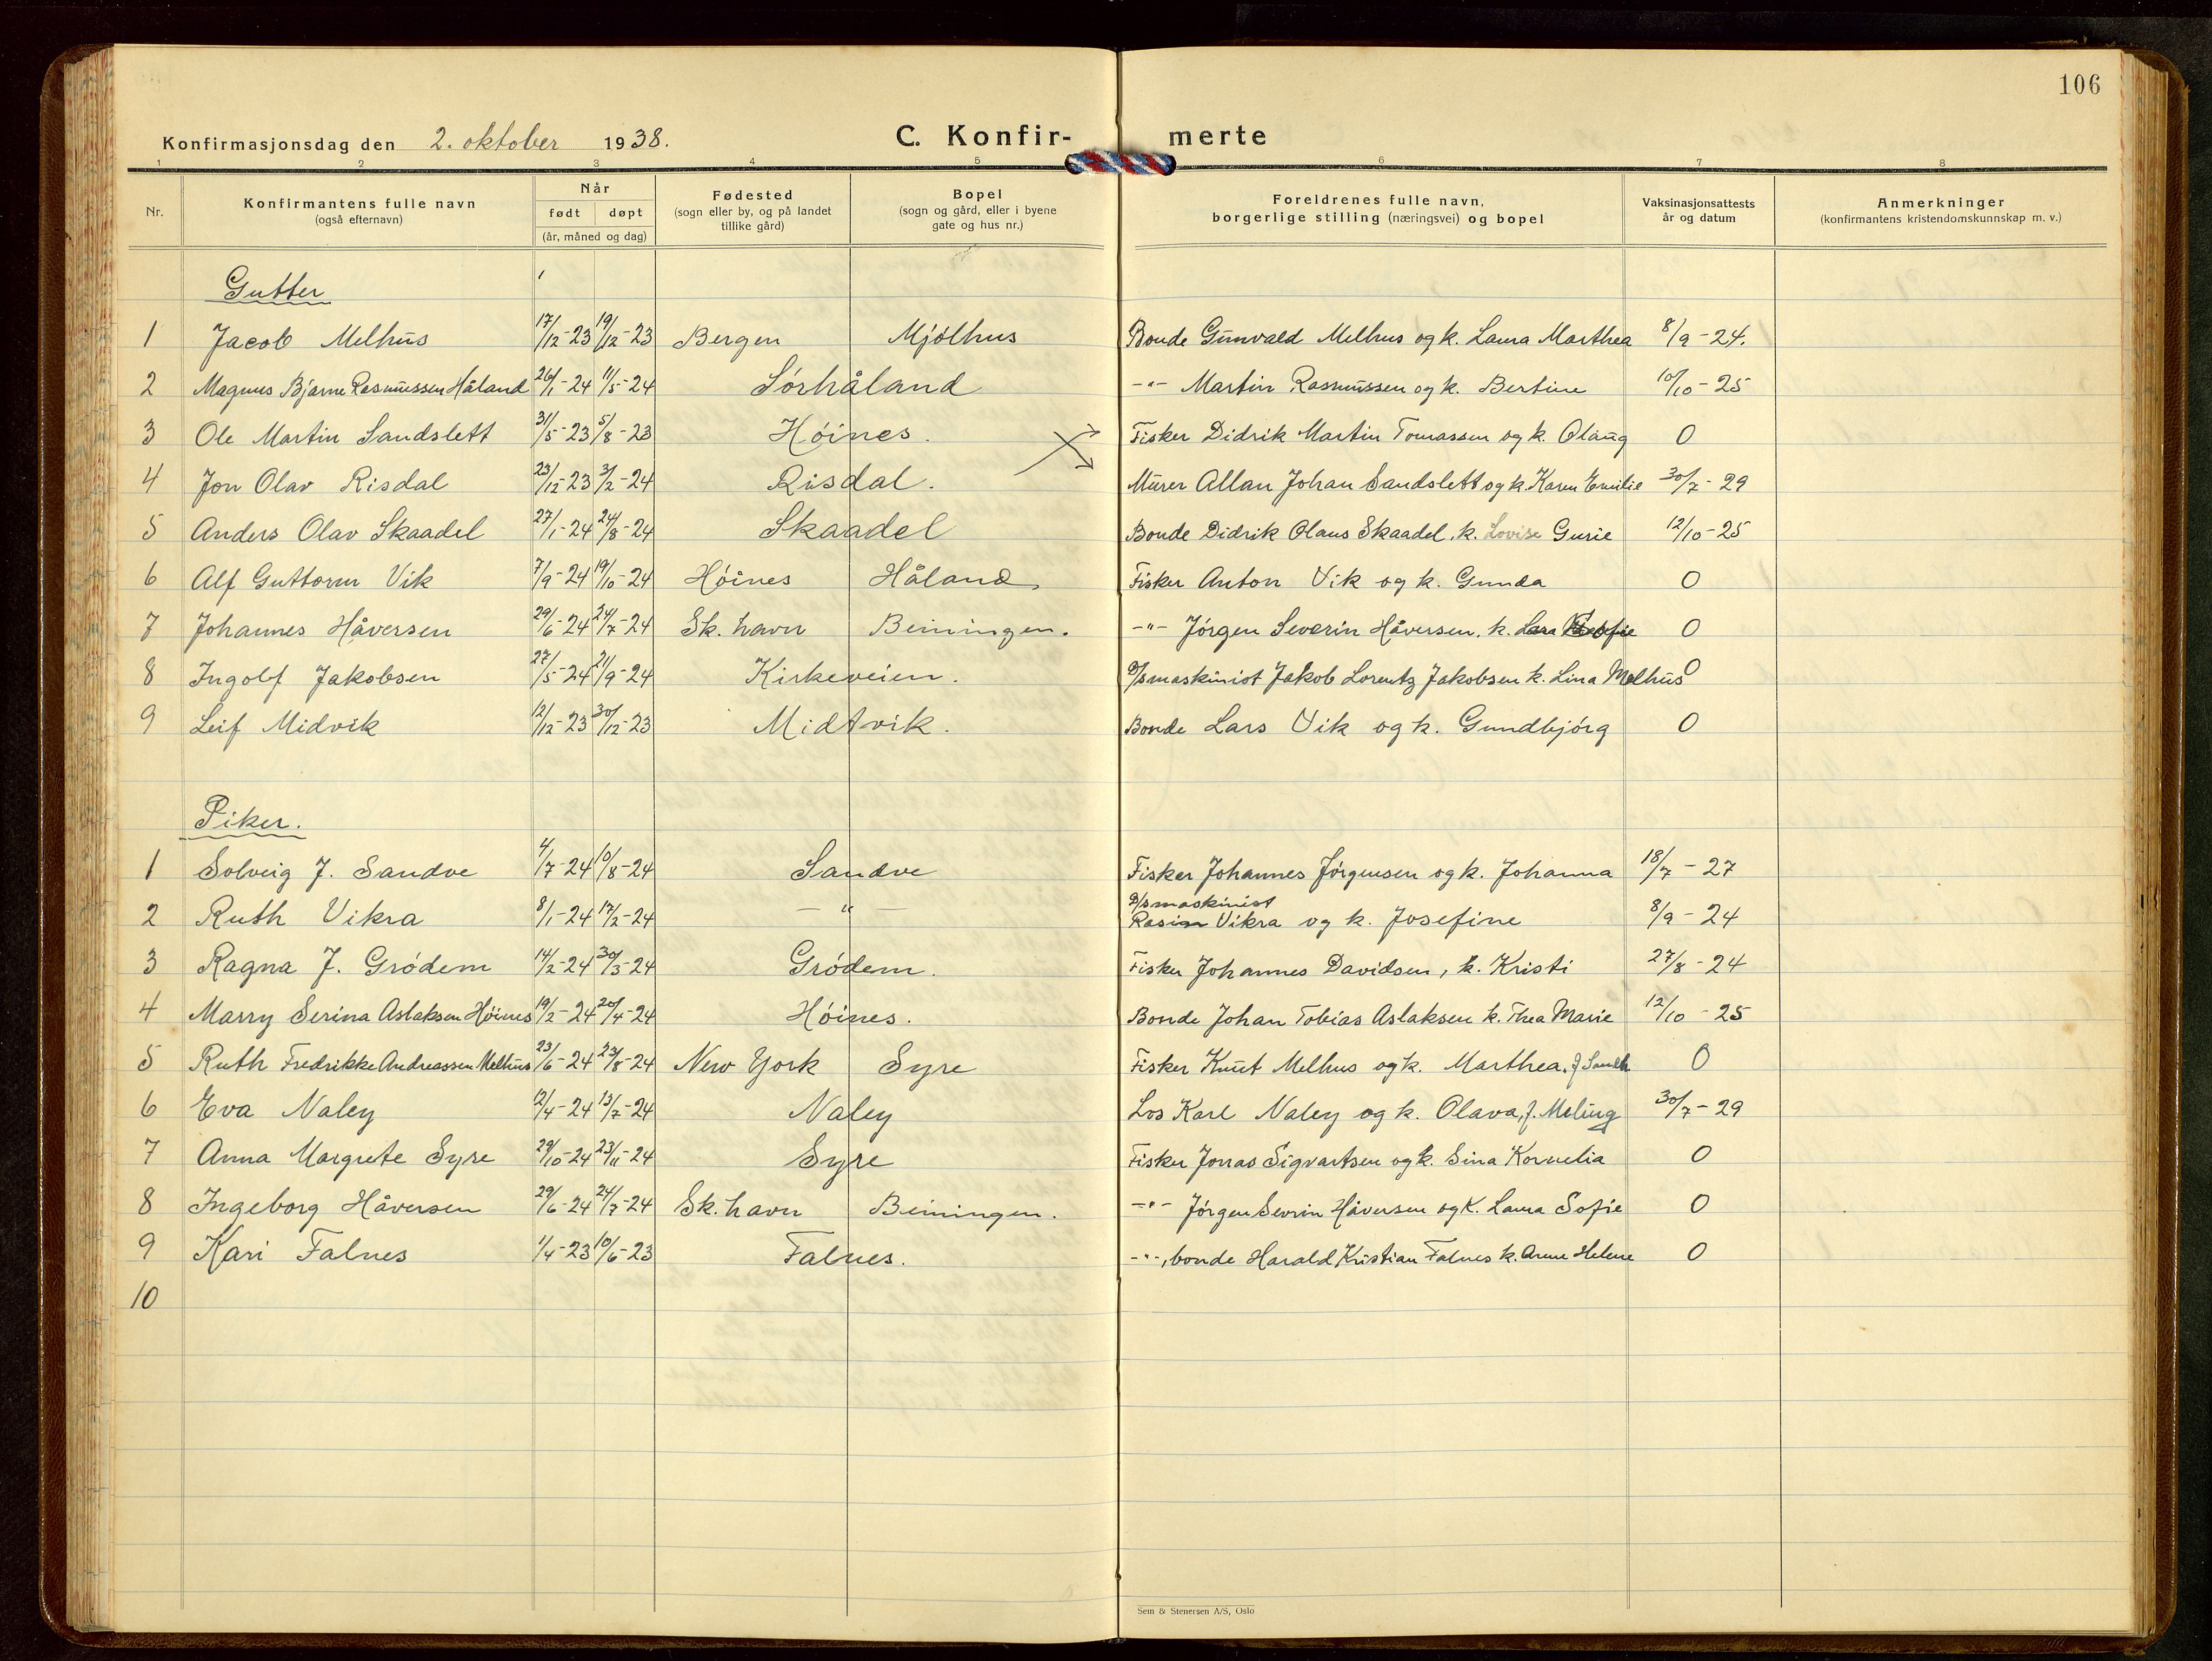 106
Konfirmasjonsdag den 2. oktober 1938. C. Konfir- merte
1 2 3 4 5 6 7 8
Nr. Konfirmantens fulle navn (også efternavn) Når født døpt (år, måned og dag) Fødested (sogn eller by, og på landet tillike gård) Bopel (sogn og gård, eller i byene gate og hus nr.) Foreldrenes fulle navn, borgerlige stilling (næringsvei) og bopel Vaksinasjonsattests år og datum Anmerkninger (konfirmantens kristendomskunnskap m. v.)
Gutter
1 Jacob Melhus 17/12-23 19/12-23 Bergen Mjølhus Bonde Gunvald Melhus og k. Laura Marthea 8/9-24.
2 Magnus Bjarne Rasmussen Håland 26/1-24 11/5-24 Sørhåland -"- Martin Rasmussen og k. Bertine 10/10-25
3 Ole Martin Sandslett 31/5-23 5/8-23 Høines. Fisker Didrik Martin Tomassen og k. Olaug 0
4 Jon Olav Risdal 23/12-23 3/2-24 Risdal. Murer Allan Johan Sandslett og k. Karen Emilie 30/7-29
5 Anders Olav Skaadel 27/1-24 24/8-24 Skaadel Bonde Didrik Olaus Skaadel, k. Lovise Gurie 12/10-25
6 Alf Guttorm Vik 7/9-24 19/10-24 Høines Håland Fisker Anton Vik og k. Gunda 0
7 Johannes Håversen 29/6-24 24/7-24 Sk. havn Beiningen. -"- Jørgen Severin Håversen, k. 0
8 Ingolf Jakobsen 27/5-24 21/9-24 Kirkeveien. D/smaskinist Jakob Lorentz Jakobsen k. Lina Melhus 0
9 Leif Midvik 12/12-23 30/12-23 Midtvik. Bonde Lars Vik og k. Gundbjørg 0
Piker.
1 Solveig J. Sandve 4/7-24 10/8-24 Sandve Fisker Johannes Jørgensen og k. Johanna 18/7-27
D/smaskinist
2 Ruth Vikra 8/1-24 17/2-24 -"- Rasim Vikra og k. Josefine 8/9-24
3 Ragna J. Grødem 14/2-24 30/3-24 Grødem. Fisker Johannes Davidsen, k. Kristi 27/8-24
4 Marry Serina Aslaksen Høines 19/2-24 20/4-24 Høines. Bonde Johan Tobias Aslaksen k. Thea Marie 12/10-25
5 Ruth Fredrikke Andreassen Melhus 23/6-24 23/8-24 New York Syre Fisker Knut Melhus og k. Marthea, f. 0
6 Eva Naley 12/4-24 13/7-24 Naley Los Karl Naley og k. Olava, f. Meling 30/7-29
7 Anna Margrete Syre 29/10-24 23/11-24 Syre Fisker Jonas Sigvartsen og k. Sina Kornelia 0
8 Ingeborg Håversen 29/6-24 24/7-24 Sk. havn Beiningen. -"- Jørgen Sevrin Håversen og k. Laura Sofie 0
9 Kari Falnes 1/4-23 10/6-23 Falnes. -"-, bonde Harald Kristian Falnes k. Anne Helene 0
10
Sem & Stenersen A/S, Oslo